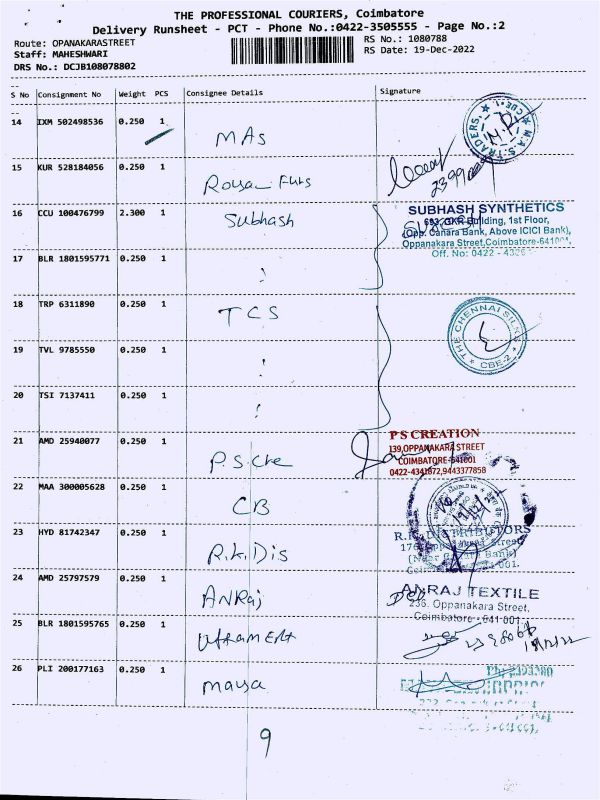 THE PROFESSIONAL COURIERS, Coimbatore
Delivery Runsheet - PCT - Phone No.:0422-3505555 - Page No.:2
Route: OPANAKARASTREET
RS No.: 1080788
Staff: MAHESHWARI
RS Date: 19-Dec-2022
DRS No.: DCJB108078802
S No Consignment No Weight PCS Consignee Details Signature
14 IXM 502498536 0.250 1 MAS
M.A.S. TRADERS
15 KUR 528184056 0.250 1
16 CCU 100476799 2.300 1 Subhash
SUBHASH SYNTHETICS
693, GKR Building, 1st Floor,
(Opp. Canara Bank, Above ICICI Bank),
Oppanakara Street, Coimbatore-641001.
Off. No: 0422 -
17 BLR 1801595771 0.250 1
18 TRP 6311890 0.250 1 TCS
THE CHENNAI SILKS
CBE-2
19 TVL 9785550 0.250 1
20 TSI 7137411 0.250 1
21 AMD 25940077 0.250 1 P.S.Cre
P S CREATION
139,OPPANAKARA STREET
COIMBATORE-641001
0422-4341872,9443377858
22 MAA 300005628 0.250 1 CB
23 HYD 81742347 0.250 1 R.K.Dis
R.K. DISTRIBUTORS
24 AMD 25797579 0.250 1 ANRaj
ANRAJ TEXTILE
236, Oppanakara Street,
Coimbatore - 641 001.
25 BLR 1801595765 0.250 1
26 PLI 200177163 0.250 1 maya
9